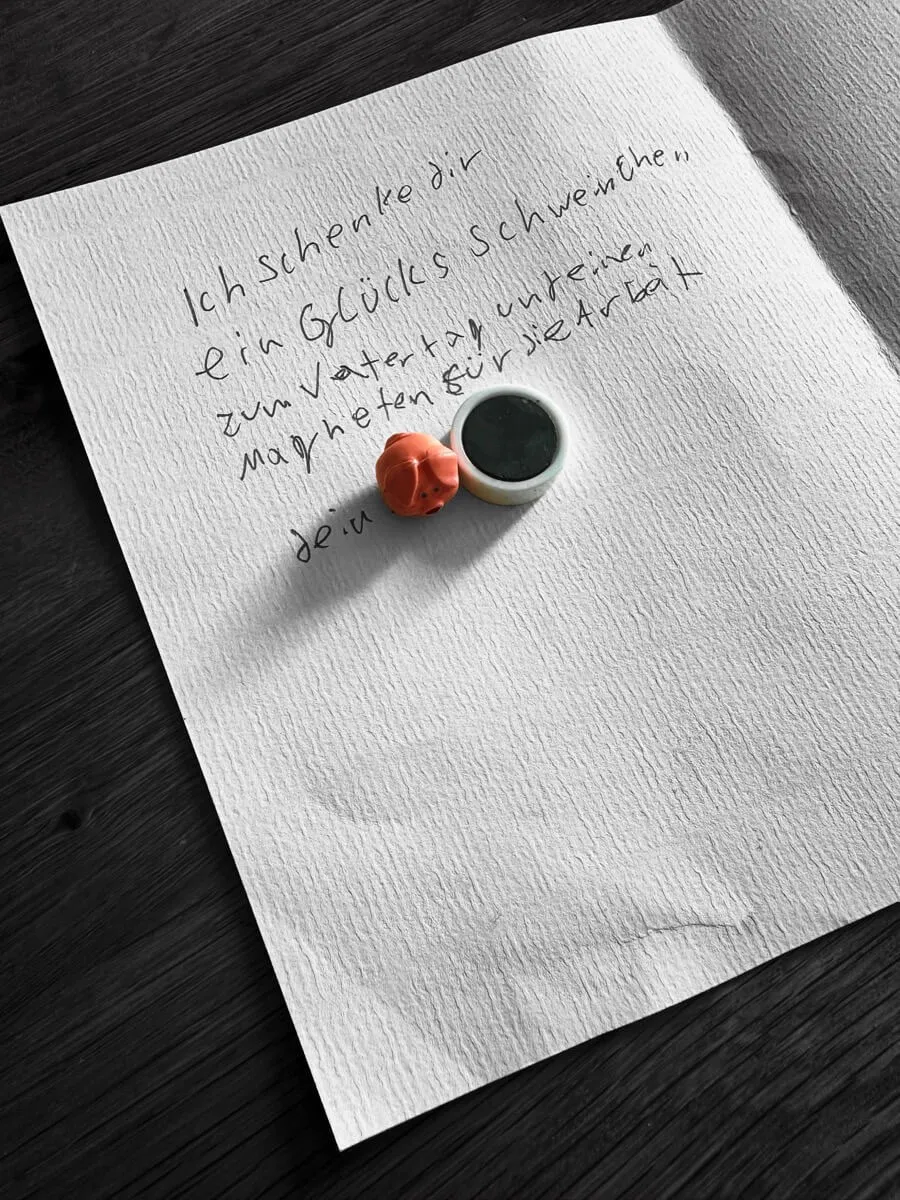 Ich schenke dir
ein GLücks schweinchen
zum Vatertag unt einen
Magneten für die Arbeit
dein